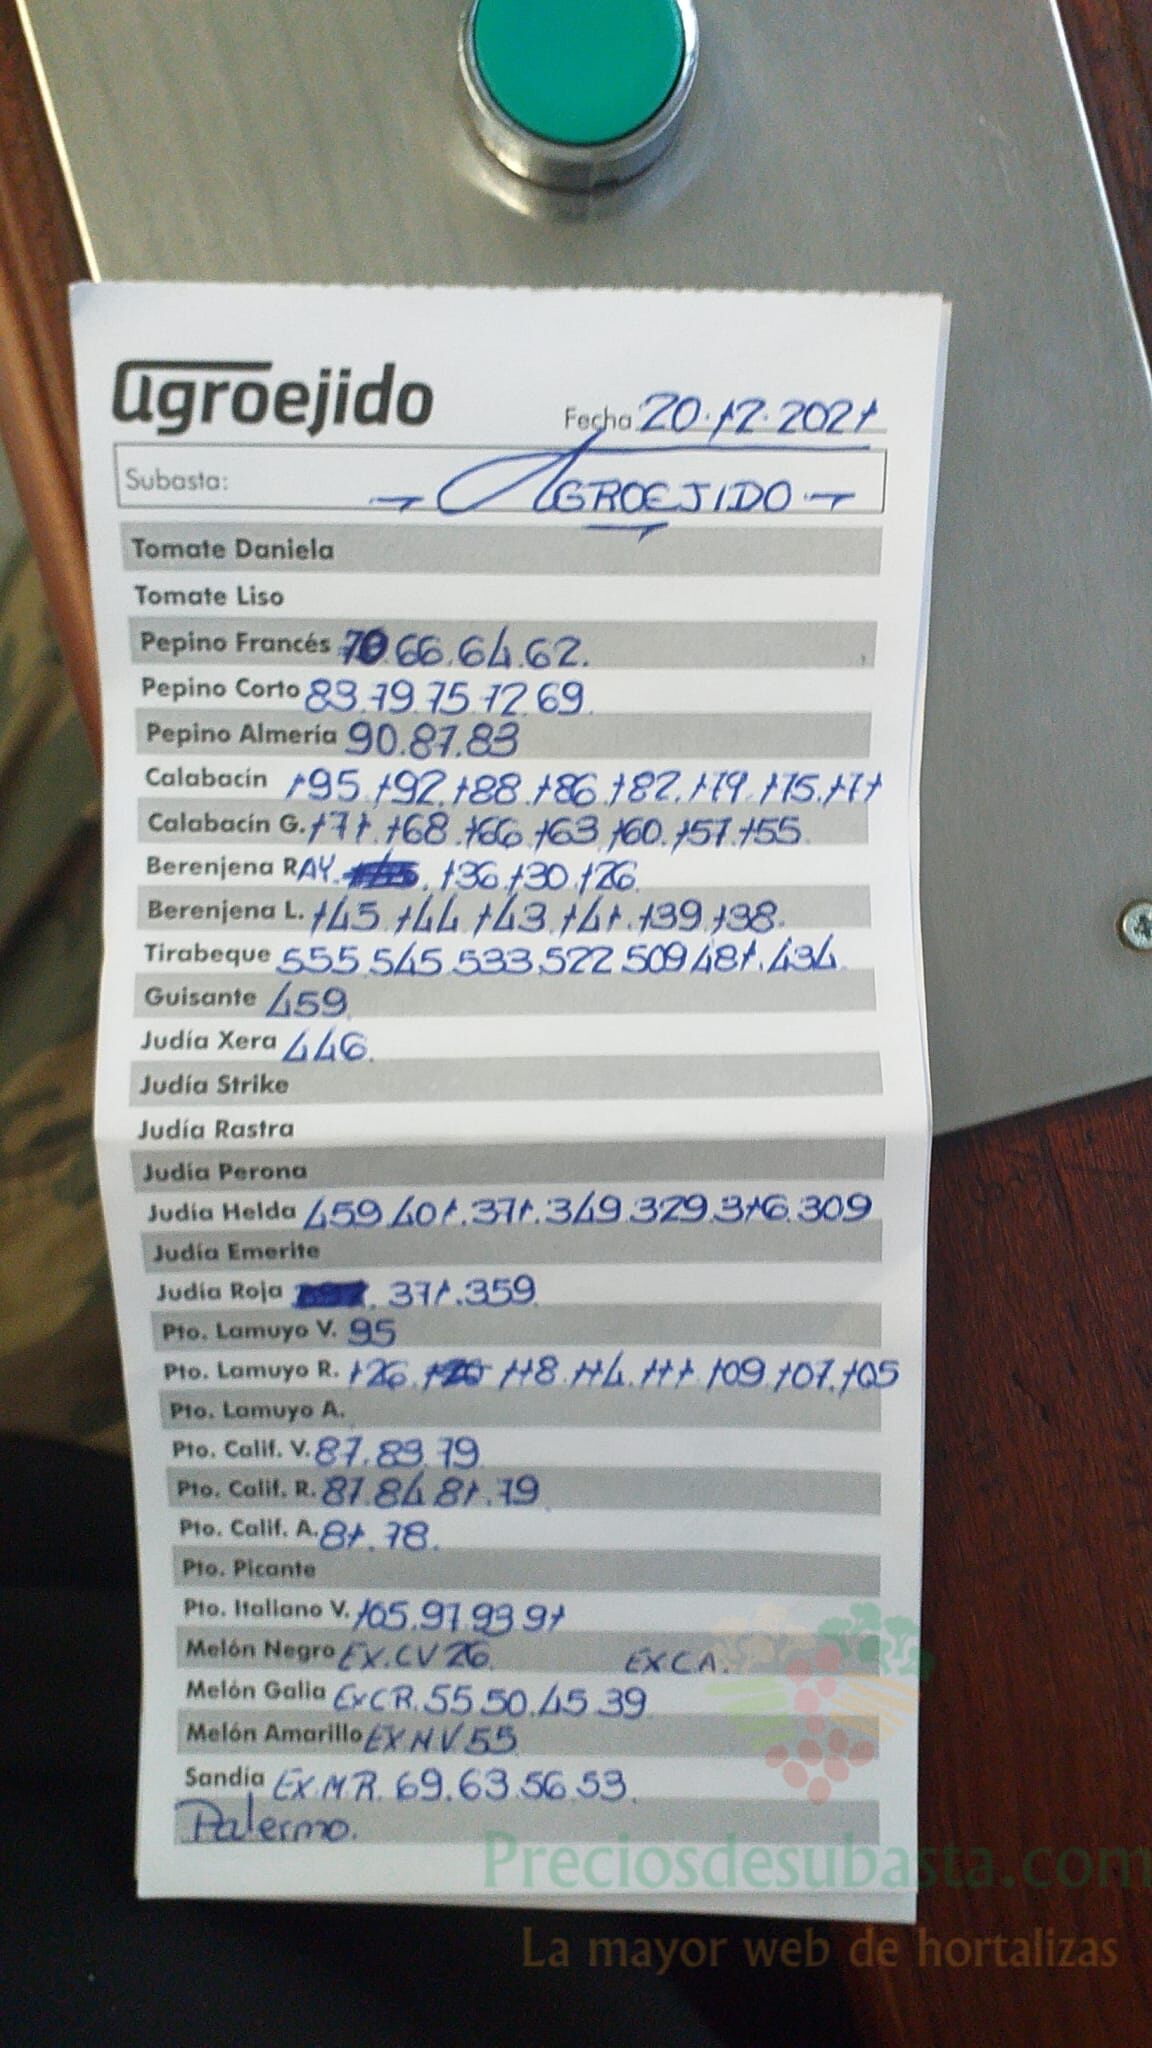 agroejido
Fecha 20.12.2021
Subasta: AGROEJIDO
Tomate Daniela
Tomate Liso
Pepino Francés 70 66.64.62.
Pepino Corto 83.79.75.72.69.
Pepino Almería 90.87.83
Calabacín 195.192.188.186.182.179.175.171
Calabacín G. 171.168.166.163.160.157.155.
Berenjena RAY. 136.130.126.
Berenjena L. 145.144.143.141.139.138.
Tirabeque 555.545.533.522.509.481.434.
Guisante 459.
Judía Xera 446.
Judía Strike
Judía Rastra
Judía Perona
Judía Helda 459.401.371.349.329.316.309
Judía Emerite
Judía Roja 371.359.
Pto. Lamuyo V. 95
Pto. Lamuyo R. 126. 118.114.111.109.107.105
Pto. Lamuyo A.
Pto. Calif. V. 87.83.79.
Pto. Calif. R. 87.84.81.79.
Pto. Calif. A. 81.78.
Pto. Picante
Pto. Italiano V. 105.97.93.91
Melón Negro EX.CV 26. EXCA.
Melón Galia EXCR. 55.50.45.39
Melón Amarillo EX.N.V 55
Sandía EX.M.R. 69.63.56.53.
Palermo.
Preciosdesubasta.com
La mayor web de hortalizas